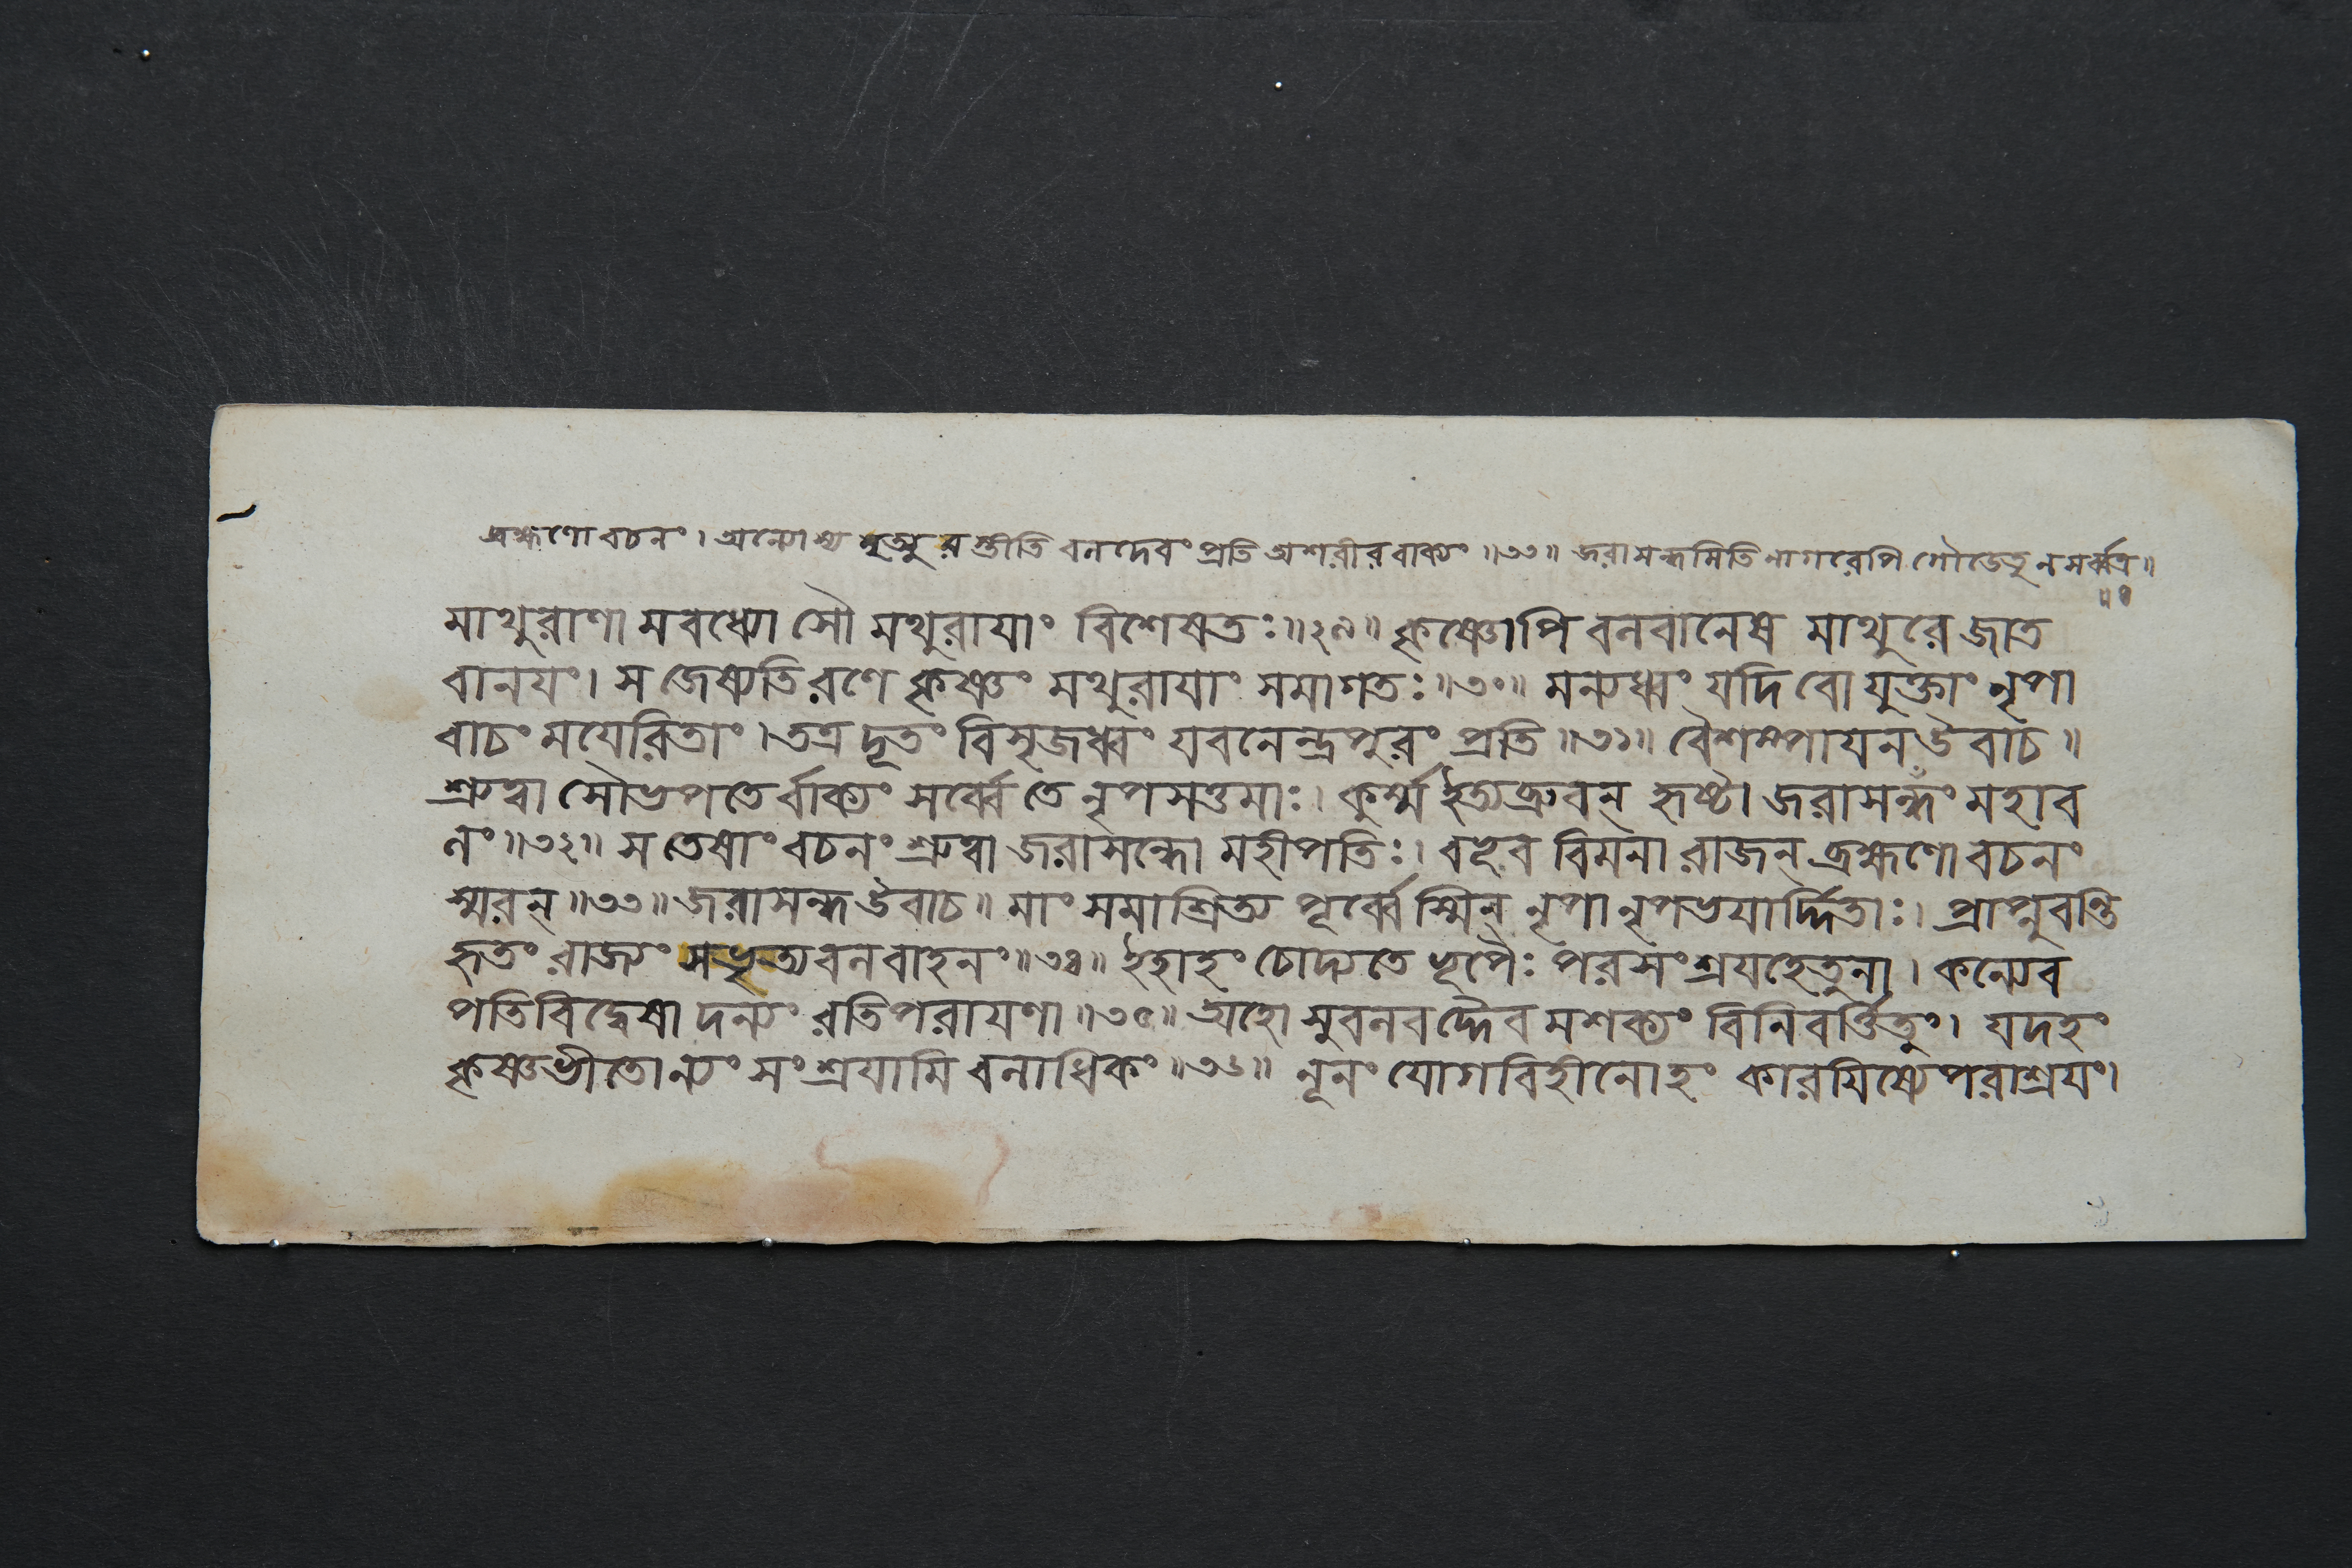 ব্রহ্মণো বচনং । অন্যোস্য মৃত্যুরস্তীতি বলদেবং প্রতি অশরীরবাক্যং ॥৩৩॥ জরাসন্ধমিতি
মাথুরাণামবধ্যোসৌ মথুরাযাং বিশেষতঃ ॥২৯॥ কৃষ্ণোপি বলবানেষ মাথুরে জাত
বানযং । স জেষ্যতি রণে কৃষ্ণং মথুরাযাং সমাগতঃ ॥৩০॥ মন্যধ্বং যদি বো যুক্তাং নৃপা
বাচং মযেরিতাং । তত্র দূতং বিসৃজধ্বং যবনেন্দ্রপুরং প্রতি ॥৩১॥ বৈশম্পাযন উবাচ ॥
শ্রুত্বা সৌভপতের্বাক্যং সর্ব্বে তে নৃপসত্তমাঃ । কুর্ম্ম ইত্যব্রুবন্ হৃষ্টা জরাসন্ধঁং মহাব
লং ॥৩২॥ স তেষাং বচনং শ্রুত্বা জরাসন্ধো মহীপতিঃ । বভূব বিমনা রাজন্ ব্রহ্মণো বচনং
স্মরন্ ॥৩৩॥ জরাসন্ধ উবাচ ॥ মাং সমাশ্রিত্য পূর্ব্বেস্মিন্ নৃপা নৃপভযার্দ্দিতাঃ । প্রাপ্নুবন্তি
হৃতং রাজ্যং সভৃত্যবলবাহনং ॥৩৪॥ ইহাহং চোদ্যতে ভূপৈঃ পরসংশ্রযহেতুনা । কন্যেব
পতিবিদ্বেষাদন্যং রতিপরাযণা ॥৩৫॥ অহো সুবলবদ্দৈবমশক্যং বিনিবর্ত্তিতুং । যদহং
কৃষ্ণভীতোন্যং সংশ্রযামি বলাধিকং ॥৩৬॥ নূনং যোগবিহীনোহং কারযিষ্যে পরাশ্রযং ।